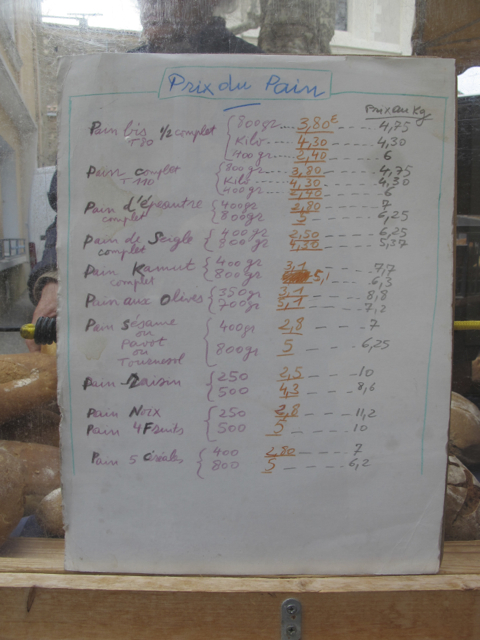 Prix du Pain
Prix au Kg
Pain bis 1/2 complet 800gr 3,80€ 4,75
T80 Kilo 4,30 4,30
400gr 2,40 6
Pain complet 800gr 3,80 4,75
T110 Kilo 4,30 4,30
400gr 2,40 6
Pain d'épeautre 400gr 2,80 7
complet 800gr 5 6,25
Pain de Seigle 400gr 2,50 6,25
complet 800gr 4,30 5,37
Pain Kamut 400gr 3,1 7,7
complet 800gr 5,1 6,3
Pain aux Olives 350gr 3,1 8,8
700gr 5,1 7,2
Pain Sésame 400gr 2,8 7
ou
Pavot 800gr 5 6,25
ou
Tournesol
Pain Raisin 250 2,5 10
500 4,3 8,6
Pain Noix 250 2,8 11,2
Pain 4 Fruits 500 5 10
Pain 5 Céréales 400 2,80 7
800 5 6,2